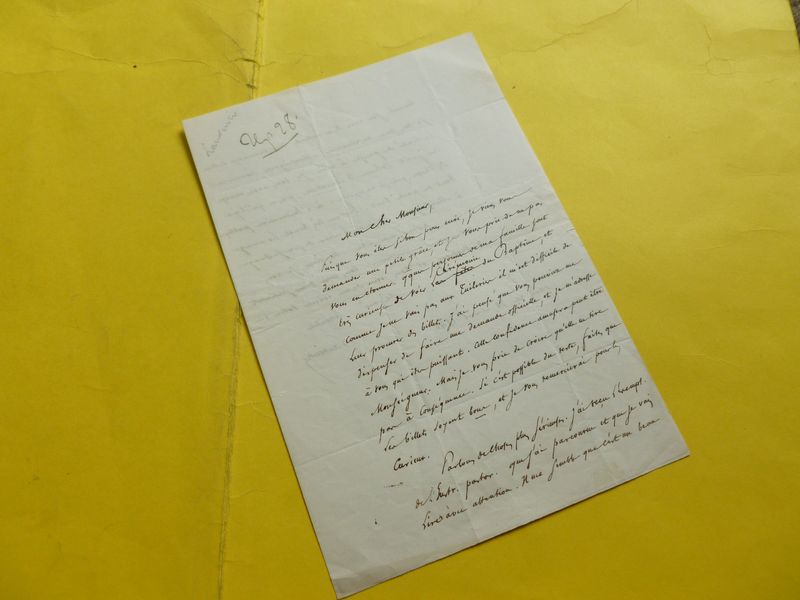 28.
Mon cher Monsieur,
Puisque vous êtes si bon pour moi, je viens vous
demander une petite grâce, et je vous prie de ne pas
vous en étonner. qques personnes de ma famille sont
très curieuses de voir la cérémonie du Baptême, et
comme je ne vais pas aux Tuileries il m'est difficile de
leur procurer des billets. J'ai pensé que vous pourriez me
dispenser de faire une demande officielle, et je m'adresse
à vous qui êtes puissant. Cette confidence amusera peut être
Monseigneur. Mais je vous prie de croire qu'elle ne tire
pas à conséquence. Si c'est possible du reste, faites que
les billets soyent bons, et je vous remercierai pour les
curieux.
Parlons de choses plus sérieuses. J'ai reçu l'exempl.
de l'Instr. pastor. que j'ai parcourue et que je vais
lire avec attention. Il me semble que c'est un beau